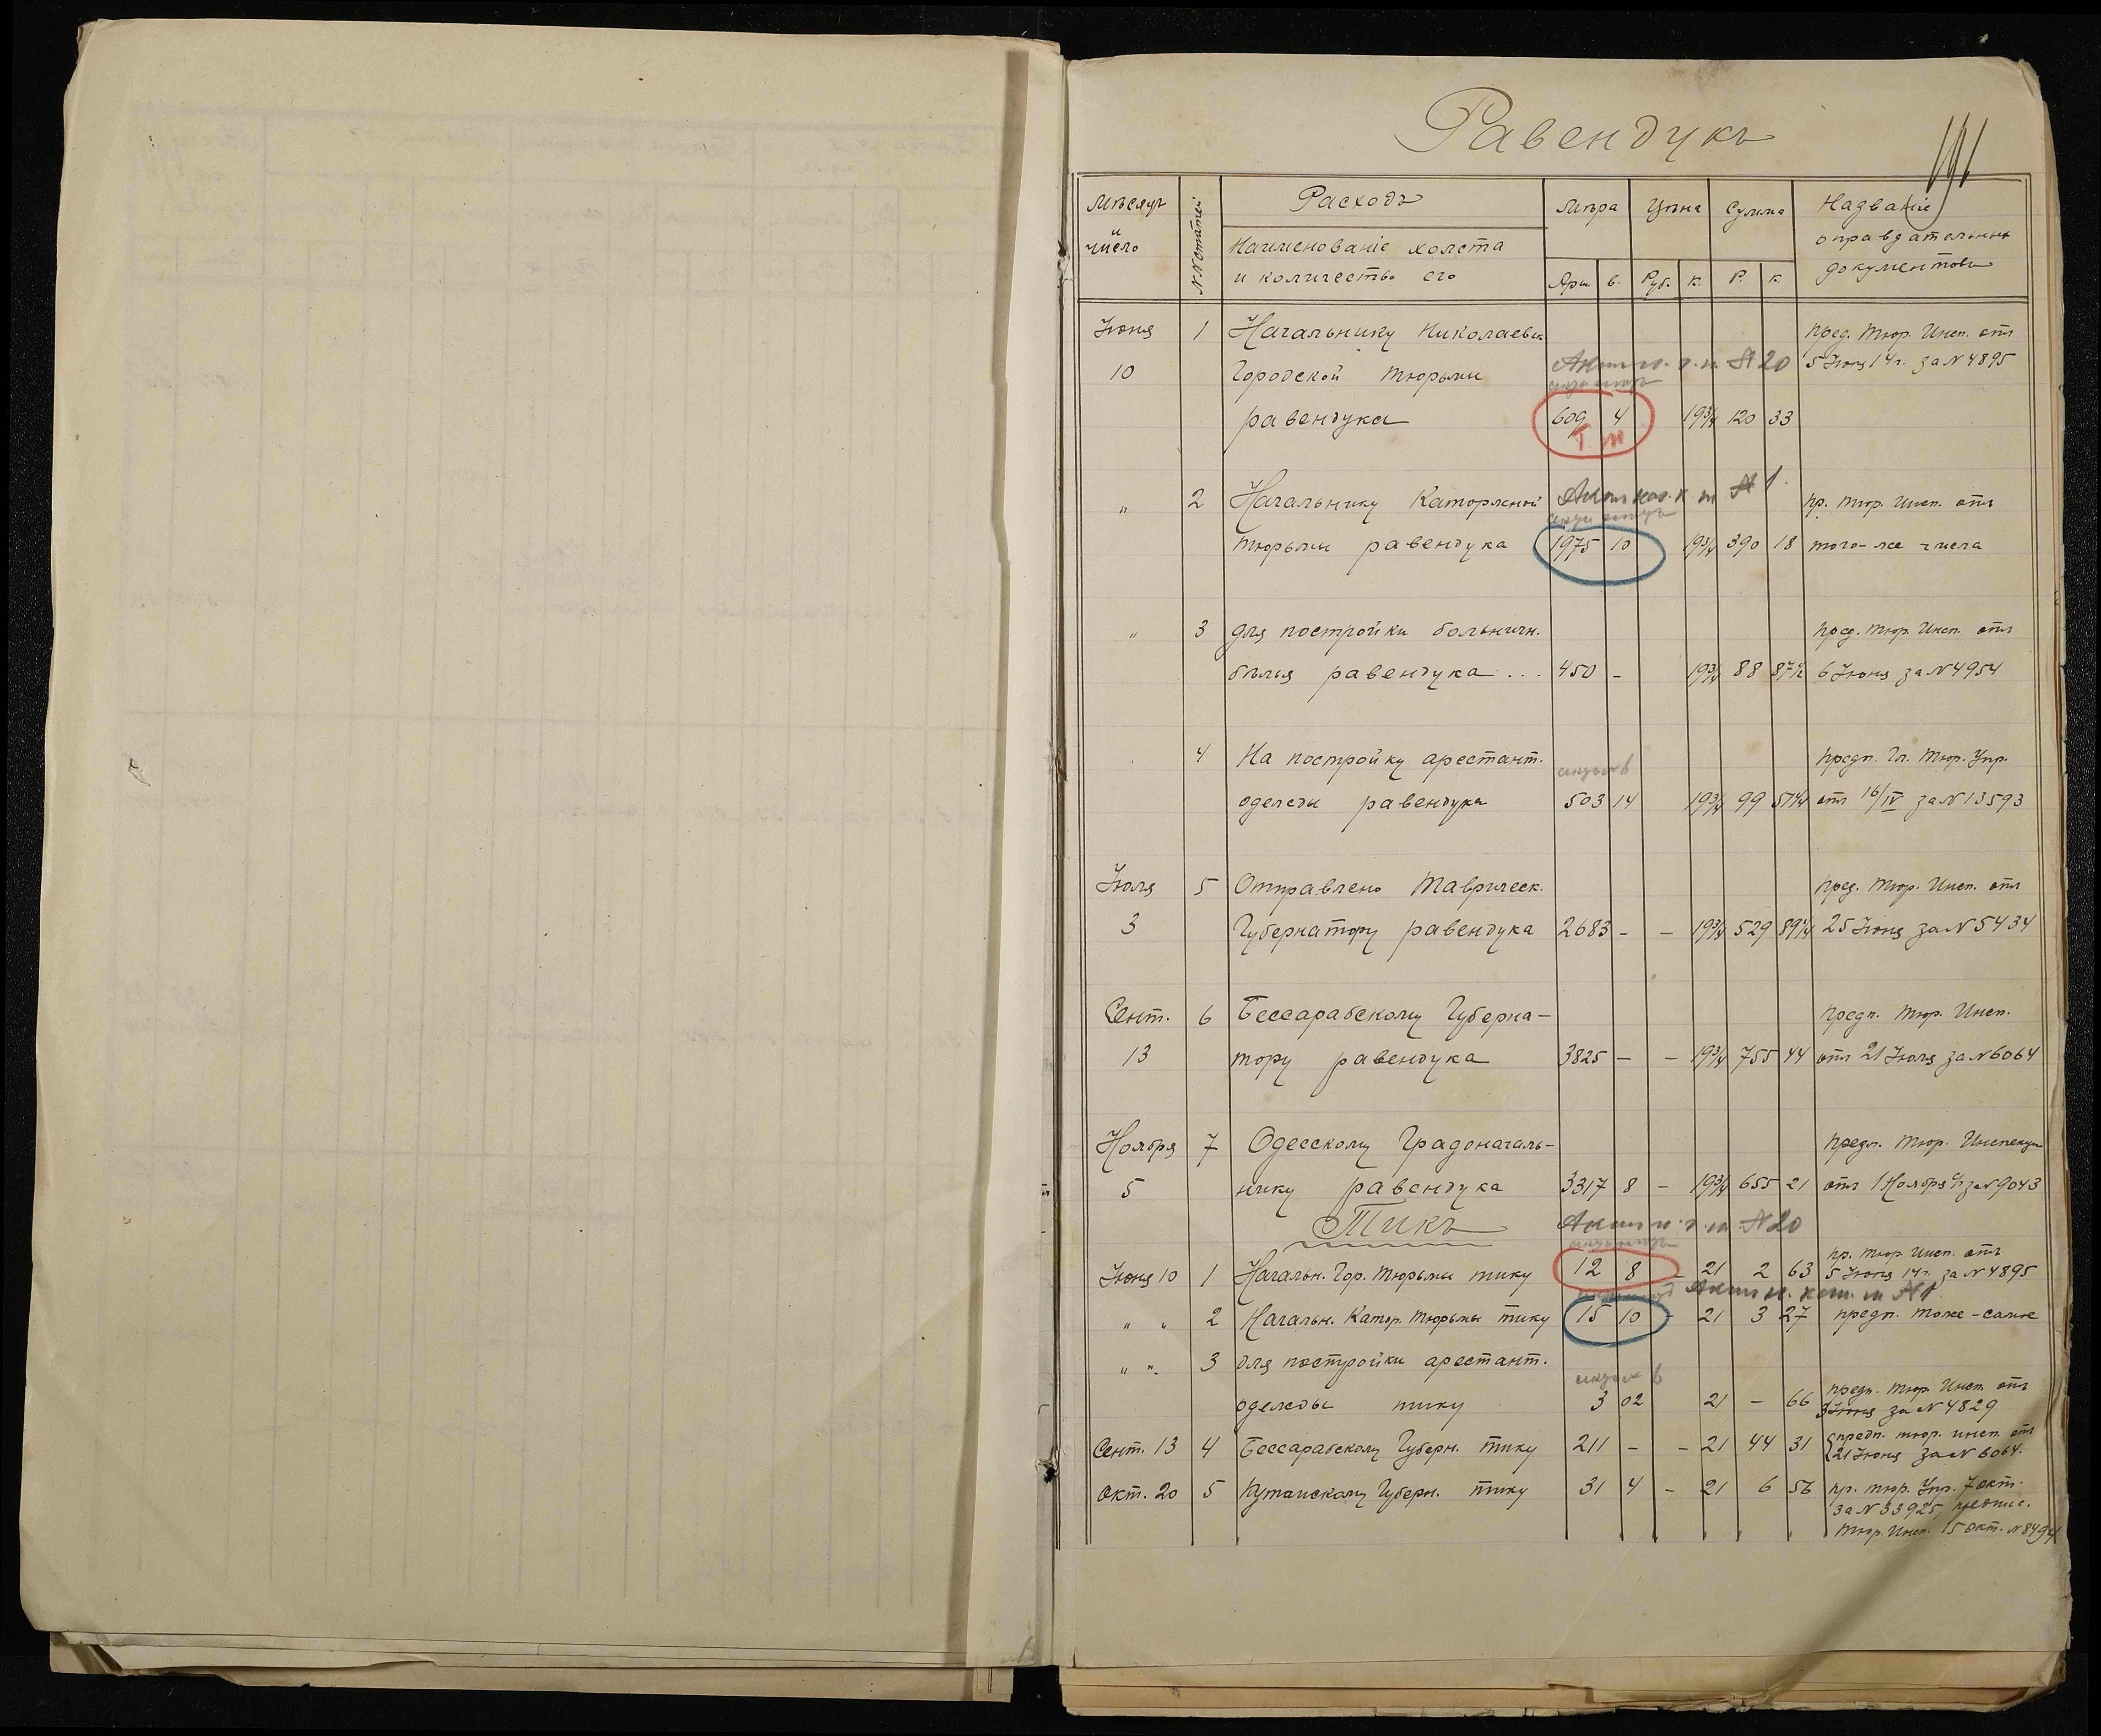 Равендукъ
191
Мѣсяцъ и число
№№ статей
Расходъ
Наименованіе холста
и количество его
Мѣра
Цѣна
Сумма
Названіе
оправдательныхъ
документовъ
Арш. в. Руб. к. Р. к.
Июня 1 Начальнику Николаевск. пред. Тюр. Инсп. отъ
10 Городской тюрьмы Актъ н. г. т. № 20 5 Июня 14 г. за № 4895
равендука 609 4 19¾ 120 33
" 2 Начальнику Каторжной Актъ кат. т № 1. пр. тюр. Инсп. отъ
тюрьмы равендука 1975 10 19¾ 390 18 того-же числа
" 3 для постройки больничн. пред. тюр. Инсп. отъ
бѣлья равендука ... 450 - 19¾ 88 87½ 6 Июня за № 4954
4 На постройку арестант. предп. Гл. Тюр. Упр.
одежды равендука 503 14 19¾ 99 51¼ отъ 16/IV за № 13593
Июля 5 Отправлено Таврическ. пред. Тюр. Инсп. отъ
3 Губернатору равендука 2683 - - 19¾ 529 89¼ 25 Июня за № 5434
Сент. 6 Бессарабскому Губерна- предп. Тюр. Инсп.
13 тору равендука 3825 - - 19¾ 755 44 отъ 21 Июля за № 6064
Ноября 7 Одесскому Градоначаль- предп. Тюр. Инспекціи
5 нику равендука 3317 8 - 19¾ 655 21 отъ 1 Ноября за № 9043
Тикъ Актъ н. г. т № 20
Июня 10 1 Начальн. Гор. Тюрьмы тику 12 8 - 21 2 63 пр. тюр. Инсп. отъ
5 Июня 14 г. за № 4895
Актъ н. кат. т № 1
" " 2 Начальн. Катор. Тюрьмы тику 15 10 - 21 3 27 предп. тоже-самое
" " 3 для постройки арестант.
одежды тику 3 02 21 - 66 предп. тюр. Инсп. отъ
3 Июня за № 4829
Сент. 13 4 Бессарабскому Губерн. тику 211 - - 21 44 31 предп. тюр. инсп. отъ
21 Июня за № 6064.
Окт. 20 5 Кутаискому Губерн. тику 31 4 - 21 6 56 пр. тюр. Упр. 7 окт.
за № 33925
Тюр. Инсп. 15 Окт. № 8494